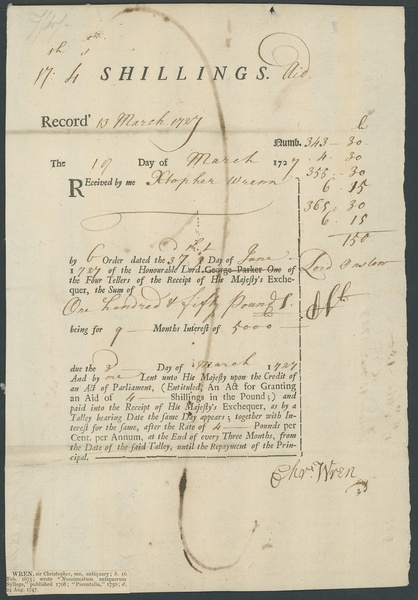 17: 4 SHILLINGS. Aid.
Record' 13 March 1727
Numb. 343 - 30
4. 30
355 - 30
6 15
365. 30
6. 15
150
The 19 Day of March 1727
Received by me Xtopher Wrenn
by 6 Order dated the 3 Day of June
1727 of the Honourable Lord George Parker One of Lord Onslow
the Four Tellers of the Receipt of His Majesty's Exche-
quer, the Sum of
One hundred & fifty Pounds
being for 9 Months Interest of 5000
due the 3 Day of March 1727
And by me Lent unto His Majesty upon the Credit of
an Act of Parliament, (Entituled, An Act for Granting
an Aid of 4 Shillings in the Pound;) and
paid into the Receipt of His Majesty's Exchequer, as by a
Talley bearing Date the same Day appears; together with In-
terest for the same, after the Rate of 4 Pounds per
Cent. per Annum, at the End of every Three Months, from
the Date of the said Talley, until the Repayment of the Prin-
cipal.
Chr. Wren
WREN, sir Christopher, son, antiquary; b. 16
Feb. 1675; wrote "Numismatum antiquorum
Sylloge," published 1708; "Parentalia," 1750; d.
24 Aug. 1747.